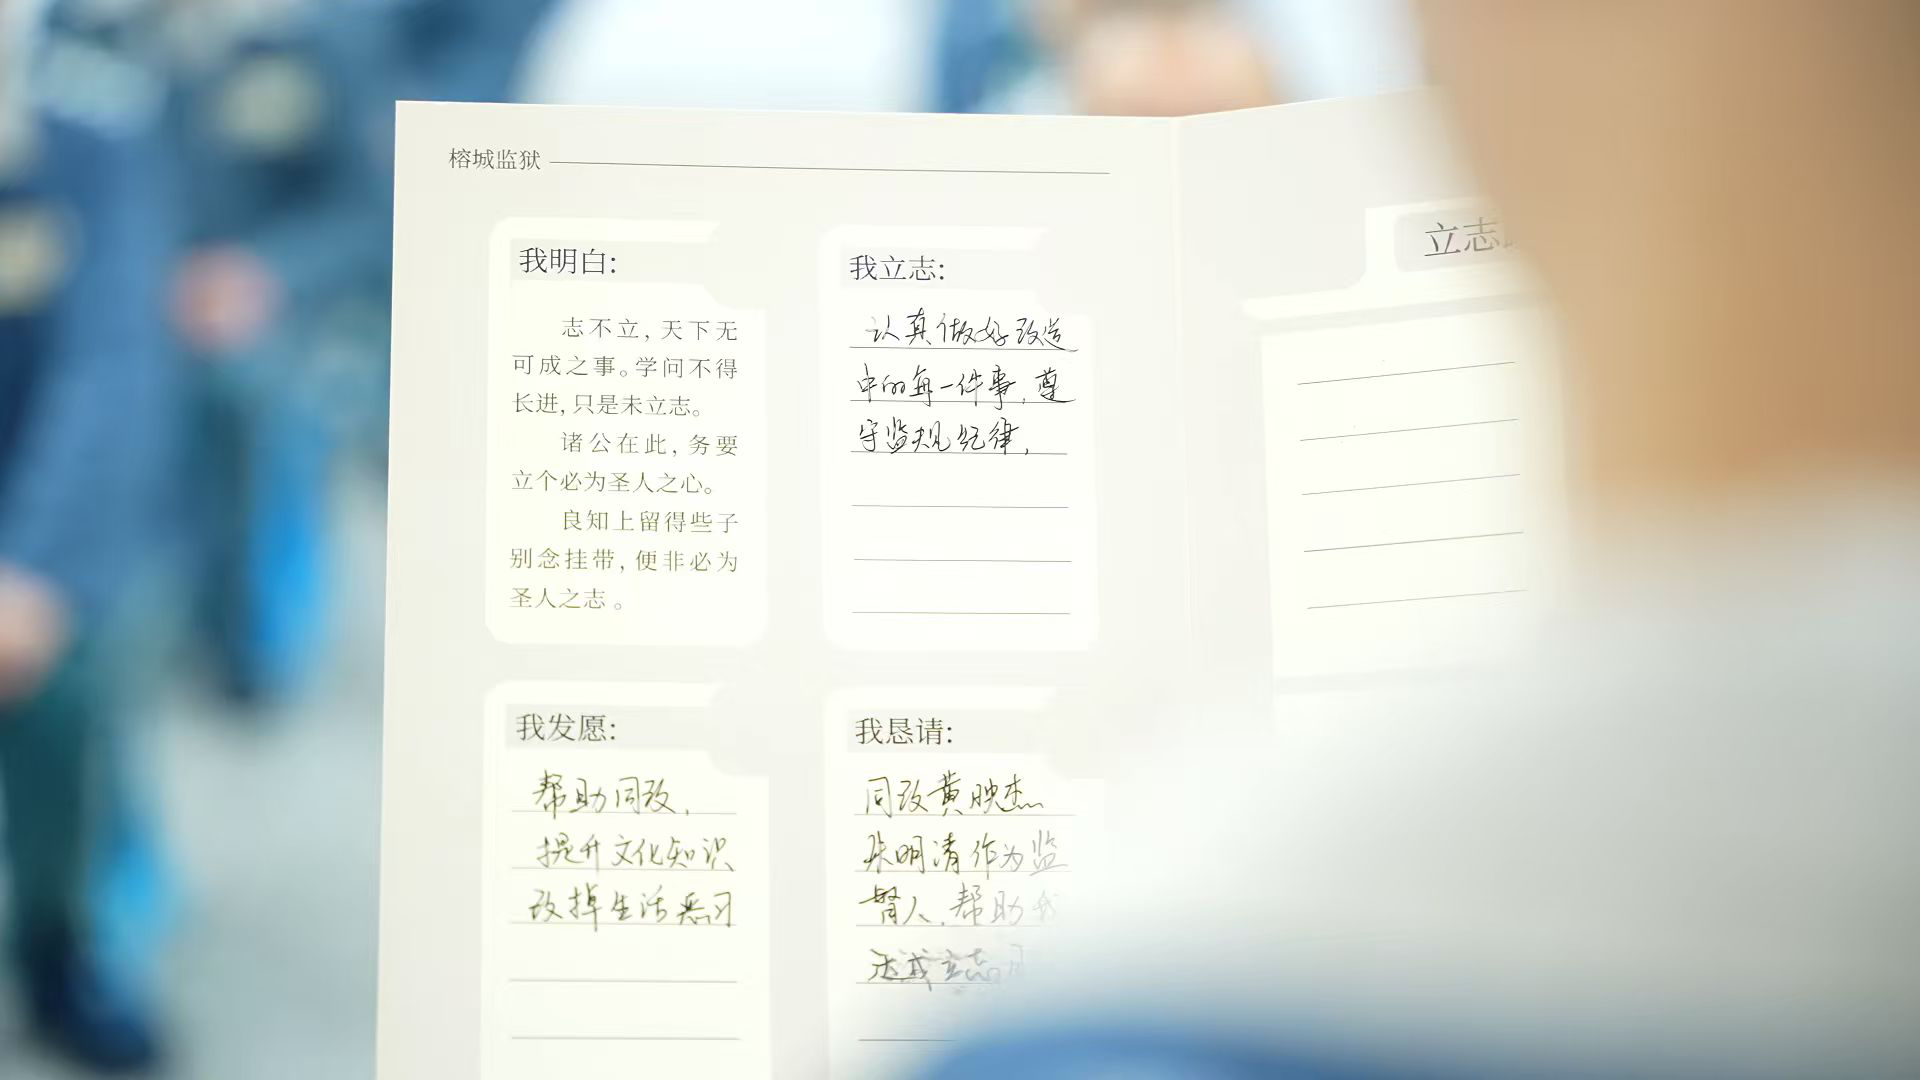 榕城监狱
我明白:
志不立，天下无
可成之事。学问不得
长进，只是未立志。
诸公在此，务要
立个必为圣人之心。
良知上留得些子
别念挂带，便非必为
圣人之志。
我立志:
认真做好改造
中的每一件事，遵
守监规纪律，
我发愿:
帮助同改，
提升文化知识
改掉生活恶习
我恳请:
同改黄映杰
朱明清作为监
督人，帮助我
达成立志
立志